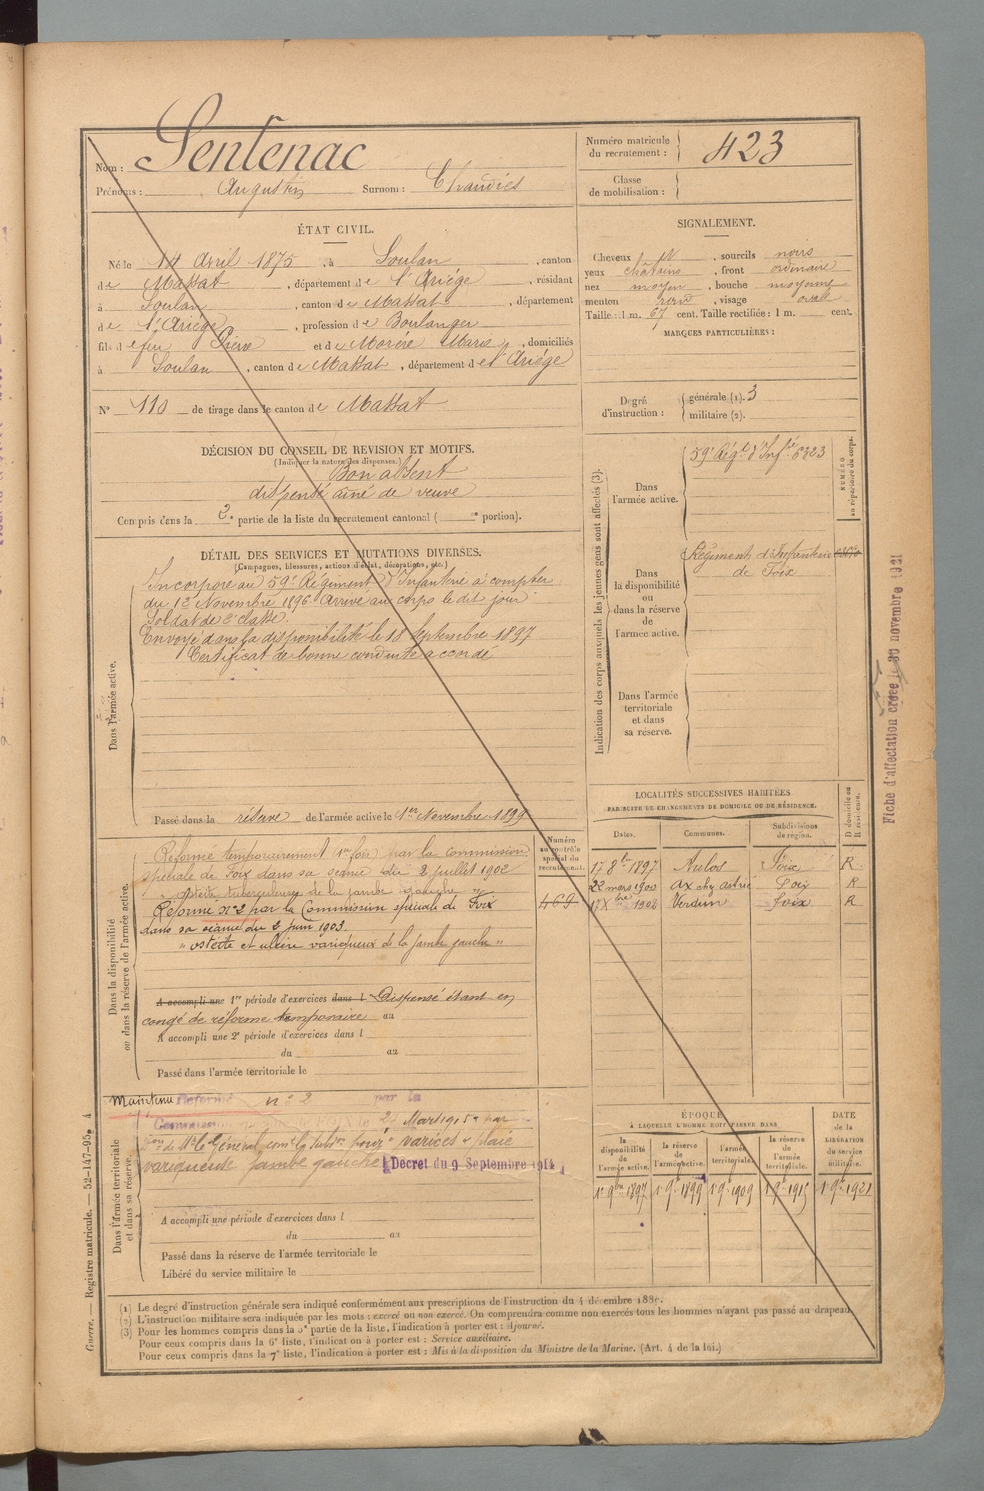 Nom : Sentenac
Prénoms : Augustin Surnom :
Numéro matricule du recrutement : 423
Classe de mobilisation :
ÉTAT CIVIL.
Né le 14 Avril 1875, à Soulan, canton
de Massat, département de l'Ariége, résidant
à Soulan, canton de Massat, département
de l'Ariége, profession de Boulanger
fils de feu Pierre et de Morère Marie, domiciliés
à Soulan, canton de Massat, département de l'Ariége
N° 110 de tirage dans le canton de Massat
SIGNALEMENT.
Cheveux N, sourcils noirs
yeux châtains, front ordinaire
nez moyen, bouche moyenne
menton rond, visage ovale
Taille : 1 m. 67 cent. Taille rectifiée : 1 m. cent.
MARQUES PARTICULIÈRES :
Degré d'instruction : générale (1). 3
militaire (2).
DÉCISION DU CONSEIL DE REVISION ET MOTIFS.
(Indiquer la nature des dispenses.)
Bon absent
dispensé aîné de veuve
Compris dans la 2e partie de la liste du recrutement cantonal ( e portion).
DÉTAIL DES SERVICES ET MUTATIONS DIVERSES.
(Campagnes, blessures, actions d'éclat, décorations, etc.)
Dans l'armée active.
Incorporé au 59e Régiment d'Infanterie à compter
du 12 Novembre 1896. Arrivé au corps le dit jour
Soldat de 2e classe.
Envoyé dans la disponibilité le 18 Septembre 1897
Certificat de bonne conduite accordé
Passé dans la réserve de l'armée active le 1er Novembre 1899
Indication des corps auxquels les jeunes gens sont affectés (3).
NUMÉRO au répertoire du corps.
Dans l'armée active.
59e Régt d'Infie 6323
Dans la disponibilité ou dans la réserve de l'armée active.
Régiment d'Infanterie
de Foix
Dans l'armée territoriale et dans sa réserve.
Fiche d'affectation créée le 30 novembre 1921
Dans la disponibilité ou dans la réserve de l'armée active.
Numéro au contrôle spécial du recrutement.
Réformé temporairement (1re fois) par la Commission
spéciale de Foix dans sa séance du 2 juillet 1902
" ostéite tuberculeuse de la jambe gauche "
Réformé n° 2 par la Commission spéciale de Foix
dans sa séance du 2 juin 1903
" ostéite et ulcère variqueux de la jambe gauche "
469
A accompli une 1re période d'exercices dans l Dispensé étant en
congé de réforme temporaire au
A accompli une 2e période d'exercices dans l
du au
Passé dans l'armée territoriale le
LOCALITÉS SUCCESSIVES HABITÉES
PAR SUITE DE CHANGEMENTS DE DOMICILE OU DE RÉSIDENCE.
Dates. Communes. Subdivisions de région. D domicile ou R résidence.
17 8bre 1897 Aulos Foix R
22 mars 1900 Ax chez Astrié Foix R
17 Xbre 1902 Verdun Foix R
Dans l'armée territoriale et dans sa réserve.
Maintenu Réformé n° 2 par la
Commission Mars 1915 par
Mr le Général pour " varices " plaie
variqueuse jambe gauche Décret du 9 Septembre 1914
A accompli une période d'exercices dans l
du au
Passé dans la réserve de l'armée territoriale le
Libéré du service militaire le
ÉPOQUE
À LAQUELLE L'HOMME DOIT PASSER DANS
la disponibilité de l'armée active. la réserve de l'armée active. l'armée territoriale. la réserve de l'armée territoriale.
DATE DE LA LIBÉRATION du service militaire.
1er 9bre 1897 1er 9bre 1899 1er 9bre 1909 1er 9bre 1915 1er 9bre 1921
(1) Le degré d'instruction générale sera indiqué conformément aux prescriptions de l'instruction du 4 décembre 1889.
(2) L'instruction militaire sera indiquée par les mots : exercé ou non exercé. On comprendra comme non exercés tous les hommes n'ayant pas passé au drapeau.
(3) Pour les hommes compris dans la 5e partie de la liste, l'indication à porter est : Ajourné.
Pour ceux compris dans la 6e liste, l'indication à porter est : Service auxiliaire.
Pour ceux compris dans la 7e liste, l'indication à porter est : Mis à la disposition du Ministre de la Marine. (Art. 4 de la loi.)
Guerre. — Registre matricule. — 52-147-95. 4